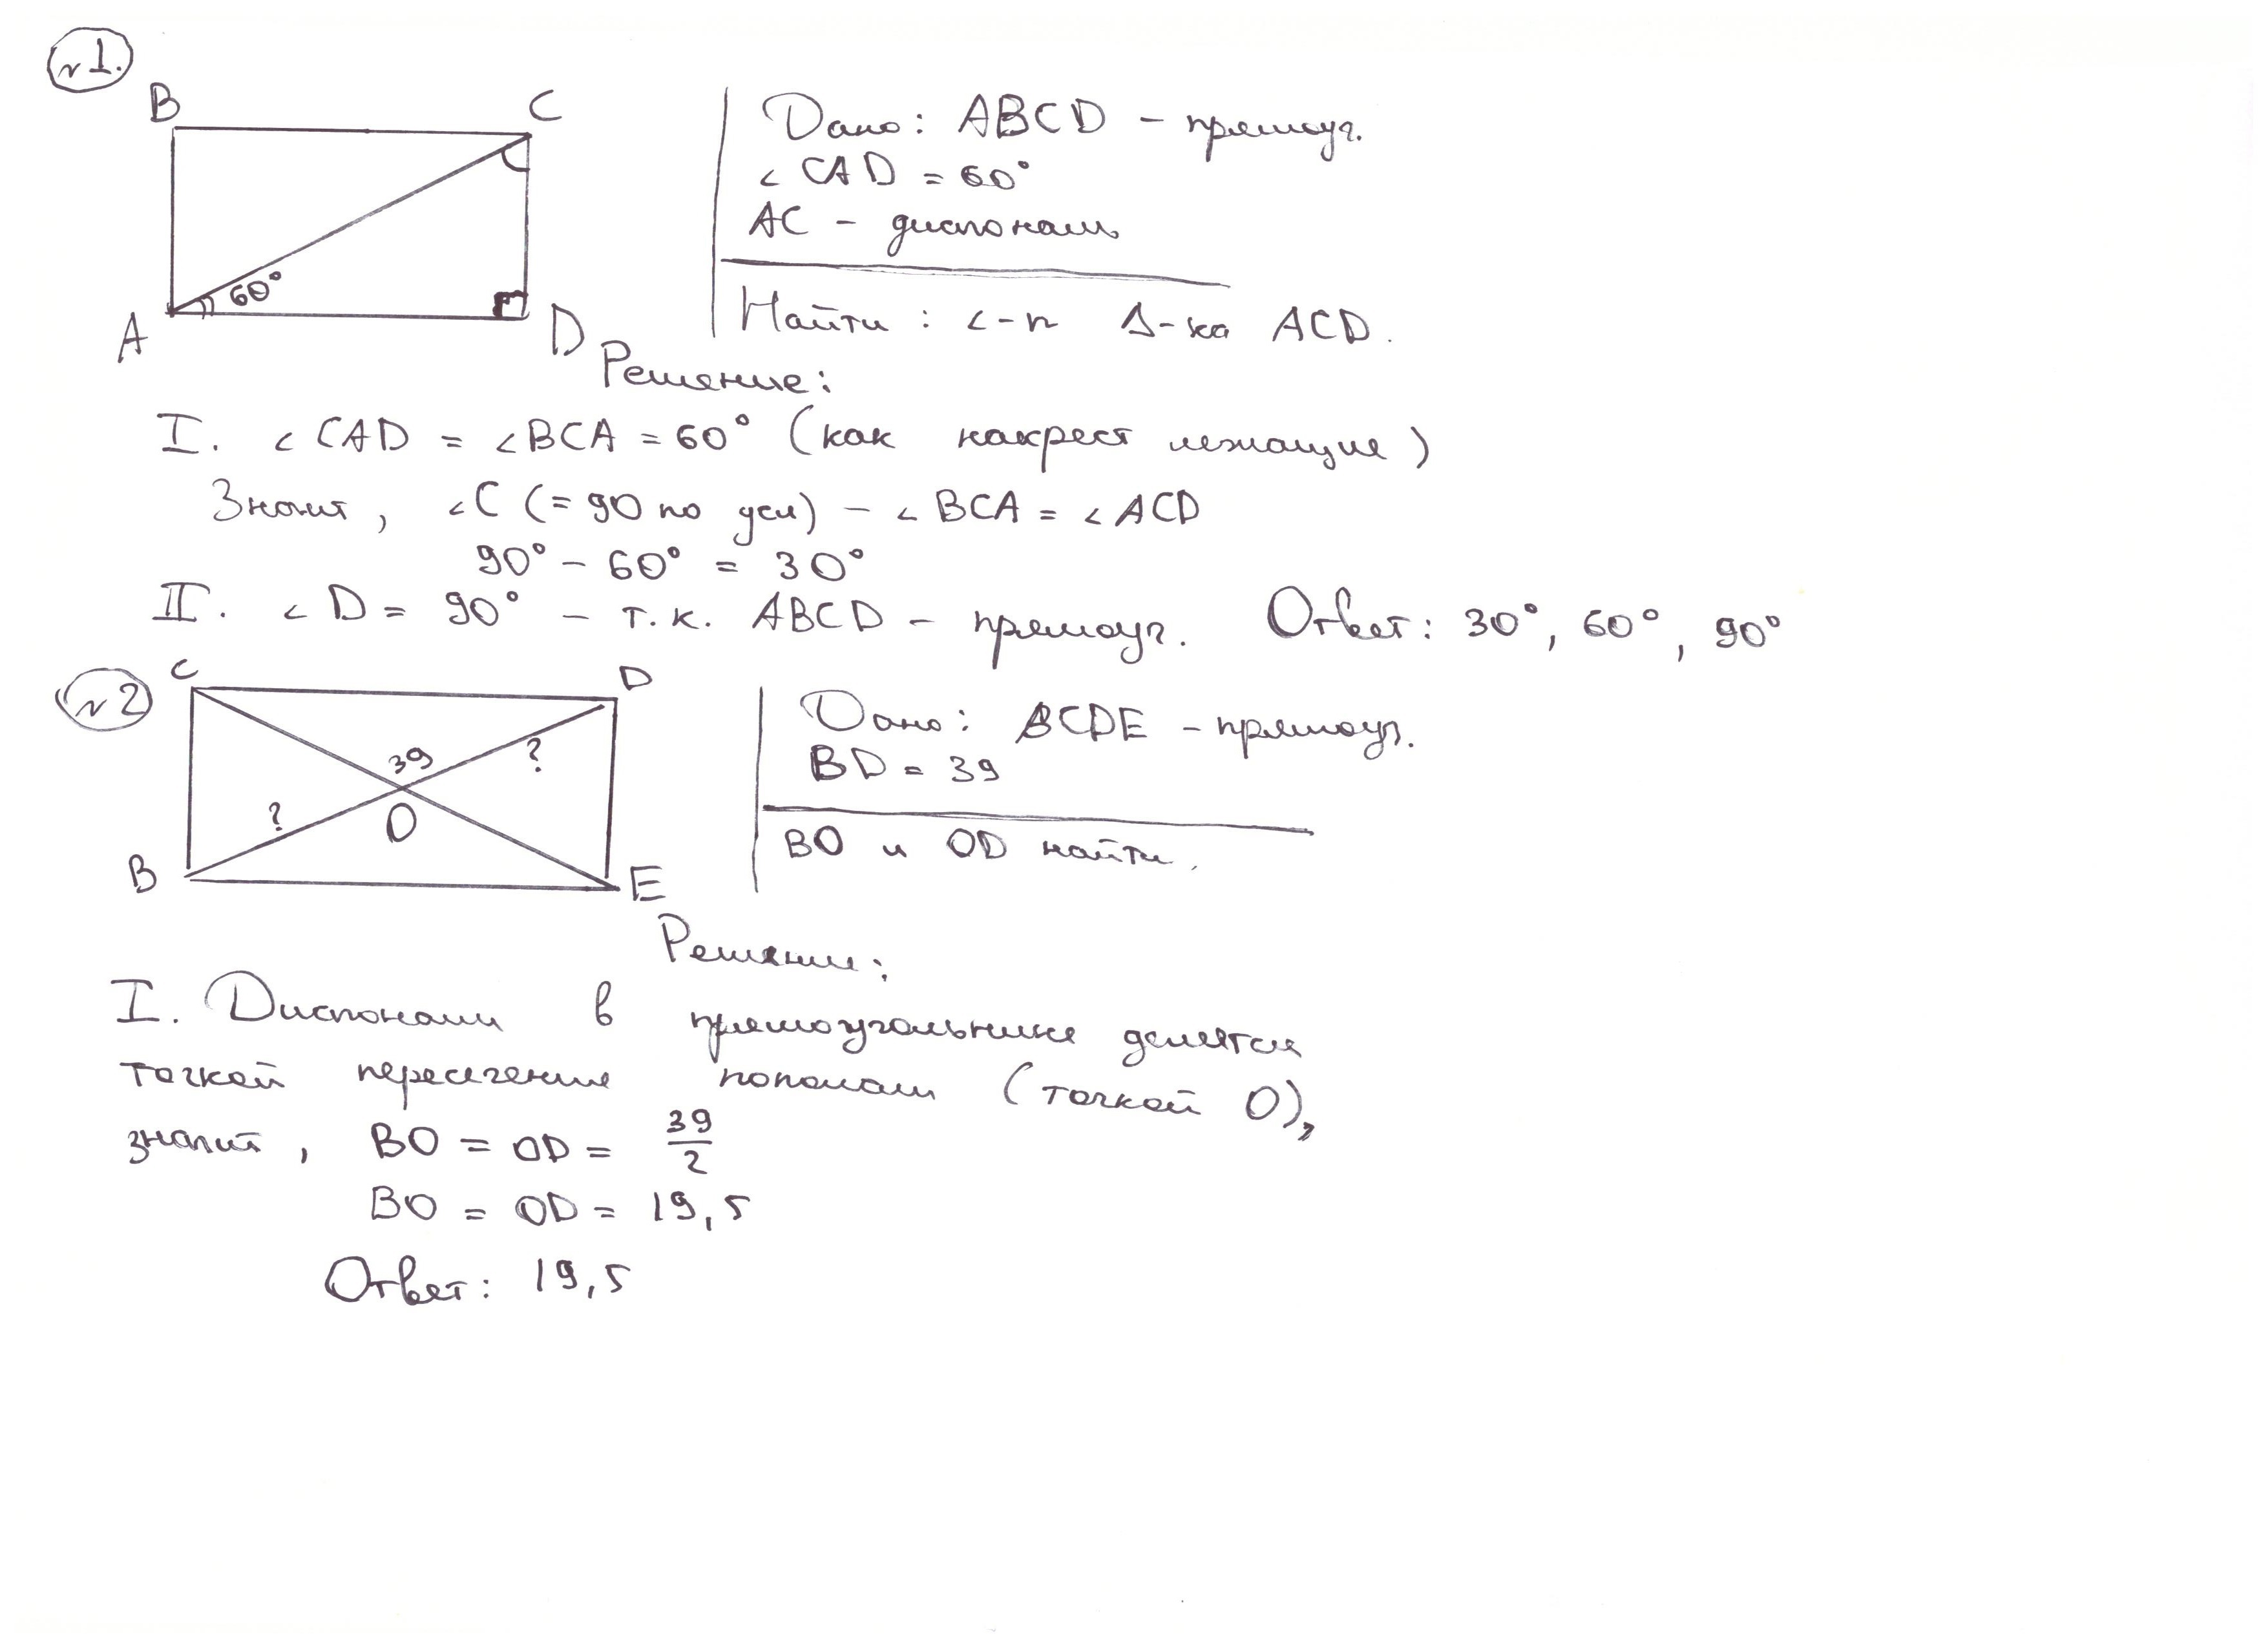 №1.
B C
60°
A D
Дано: ABCD – прямоуг.
∠CAD = 60°
AC – диагональ
Найти: ∠-и Δ-ка ACD.
Решение:
I. ∠CAD = ∠BCA = 60° (как накрест лежащие)
Значит, ∠C (= 90 по усл) – ∠BCA = ∠ACD
90° – 60° = 30°
II. ∠D = 90° – т.к. ABCD – прямоуг. Ответ: 30°, 60°, 90°
№2
C D
39 ?
? O
B E
Дано: BCDE – прямоуг.
BD = 39
BO и OD найти.
Решение:
I. Диагонали в прямоугольнике делятся
точкой пересечения пополам (точкой O),
значит, BO = OD = 39/2
BO = OD = 19,5
Ответ: 19,5